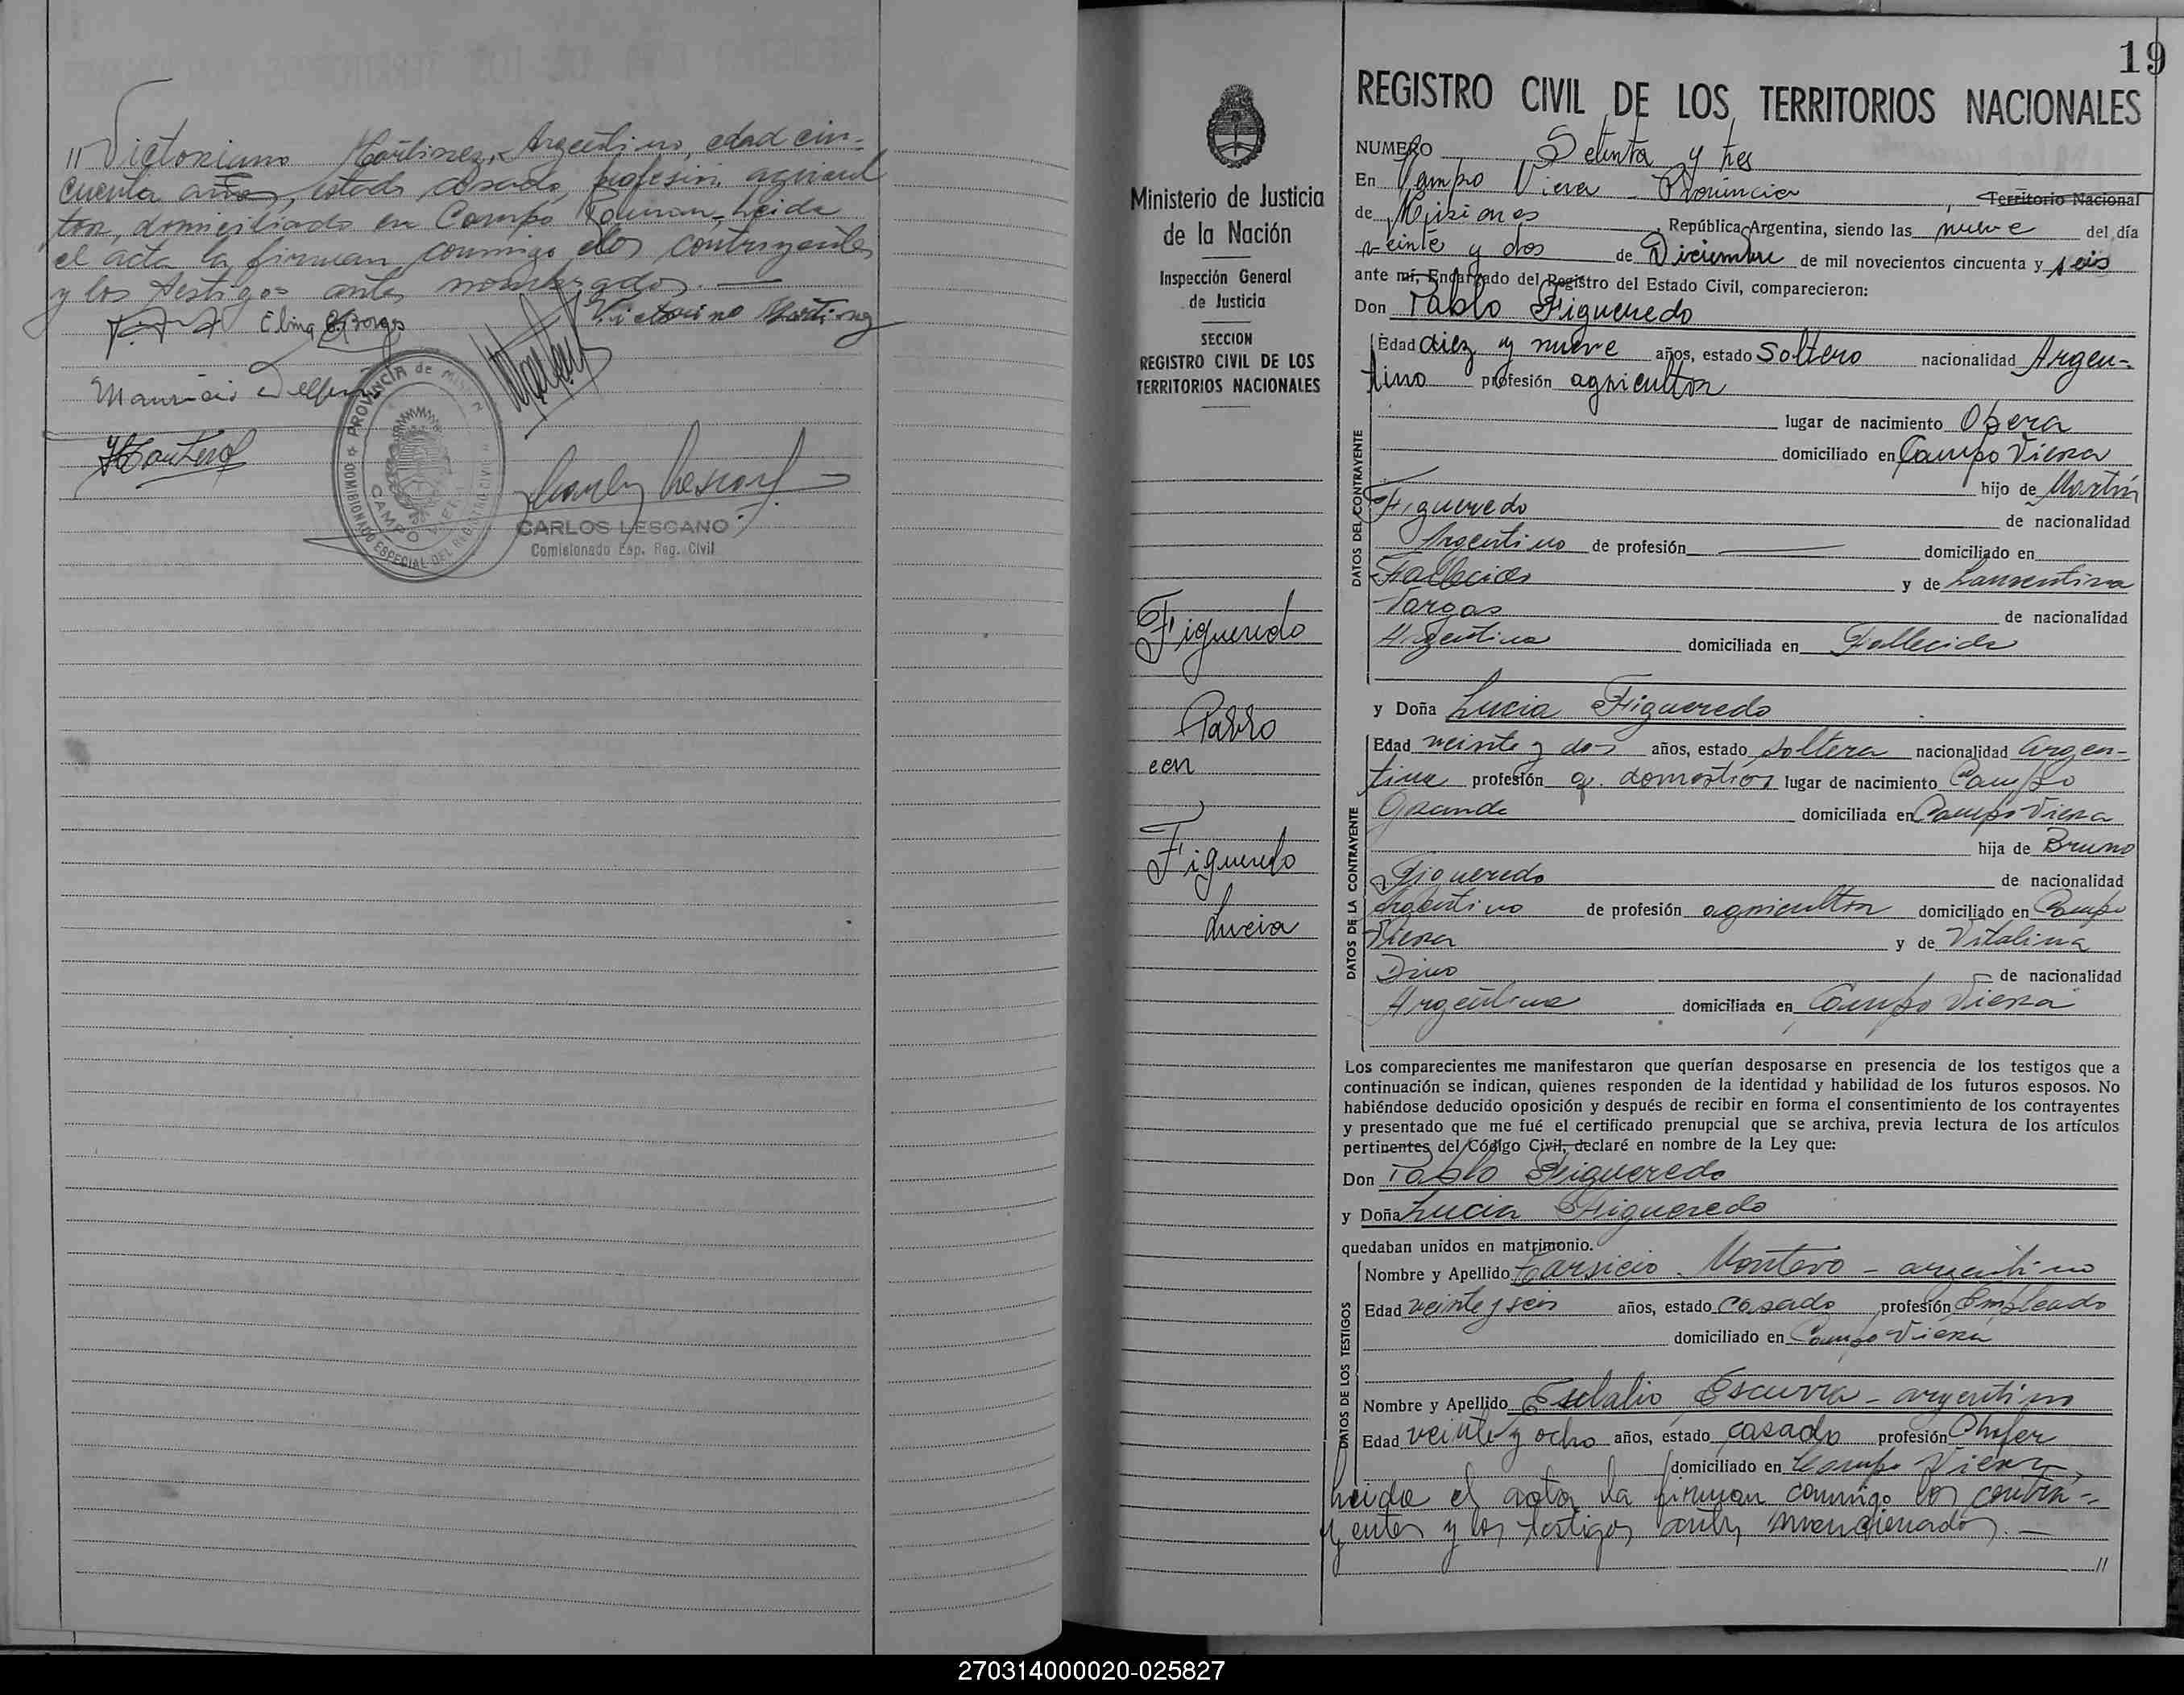 " Victoriano Martinez, Argentino, edad cin-
cuenta años, estado casado, profesion agricul
tor, domiciliado en Campo Leida
el acta la firman conmigo los contrayentes
y los testigos antes nombrados. —
Elina Borges
Victorino Martinez
Mauricio
PROVINCIA de MISIONES
COMISIONADO ESPECIAL DEL REGISTRO CIVIL
CAMPO VIERA
CARLOS LESCANO
Comisionado Esp. Reg. Civil
Ministerio de Justicia
de la Nación
Inspección General
de Justicia
SECCION
REGISTRO CIVIL DE LOS
TERRITORIOS NACIONALES
Figueredo
Pablo
con
Figueredo
Lucia
19
REGISTRO CIVIL DE LOS TERRITORIOS NACIONALES
NUMERO Setenta y tres
En Campo Viera - Provincia, Territorio Nacional
de Misiones, República Argentina, siendo las nueve del día
veinte y dos de Diciembre de mil novecientos cincuenta y seis
ante mí, Encargado del Registro del Estado Civil, comparecieron:
Don Pablo Figueredo
DATOS DEL CONTRAYENTE
Edad diez y nueve años, estado Soltero nacionalidad Argen-
tino profesión agricultor
lugar de nacimiento Obera
domiciliado en Campo Viera
hijo de Martin
Figueredo de nacionalidad
Argentino de profesión — domiciliado en
Fallecido y de Laurentina
Vargas de nacionalidad
Argentina domiciliada en Fallecida
y Doña Lucia Figueredo
DATOS DE LA CONTRAYENTE
Edad veinte y dos años, estado soltera nacionalidad argen-
tina profesión q. domesticos lugar de nacimiento Campo
Grande domiciliada en Campo Viera
hija de Bruno
Figueredo de nacionalidad
Argentino de profesión agricultor domiciliado en Campo
Viera y de Vitalina
Dino de nacionalidad
Argentina domiciliada en Campo Viera
Los comparecientes me manifestaron que querían desposarse en presencia de los testigos que a
continuación se indican, quienes responden de la identidad y habilidad de los futuros esposos. No
habiéndose deducido oposición y después de recibir en forma el consentimiento de los contrayentes
y presentado que me fué el certificado prenupcial que se archiva, previa lectura de los artículos
pertinentes del Código Civil, declaré en nombre de la Ley que:
Don Pablo Figueredo
y Doña Lucia Figueredo
quedaban unidos en matrimonio.
DATOS DE LOS TESTIGOS
Nombre y Apellido Tarsicio Montero - argentino
Edad veinte y seis años, estado casado profesión Empleado
domiciliado en Campo Viera
Nombre y Apellido Eulalio Escurra - argentino
Edad veinte y ocho años, estado casado profesión Chofer
domiciliado en Campo Viera,
Leida el acta la firman conmigo los contra-
yentes y los testigos antes mencionados. —
//
270314000020-025827